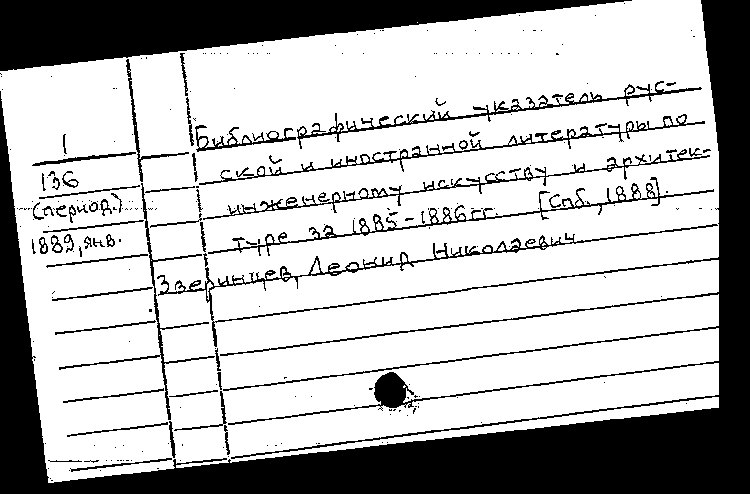 1
136
(период.)
1889, янв.
Библиографический указатель рус-
ской и иностранной литературы по
инженерному искусству и архитек-
туре за 1885-1886 гг. [Спб., 1888].
Зверинцев, Леонид Николаевич